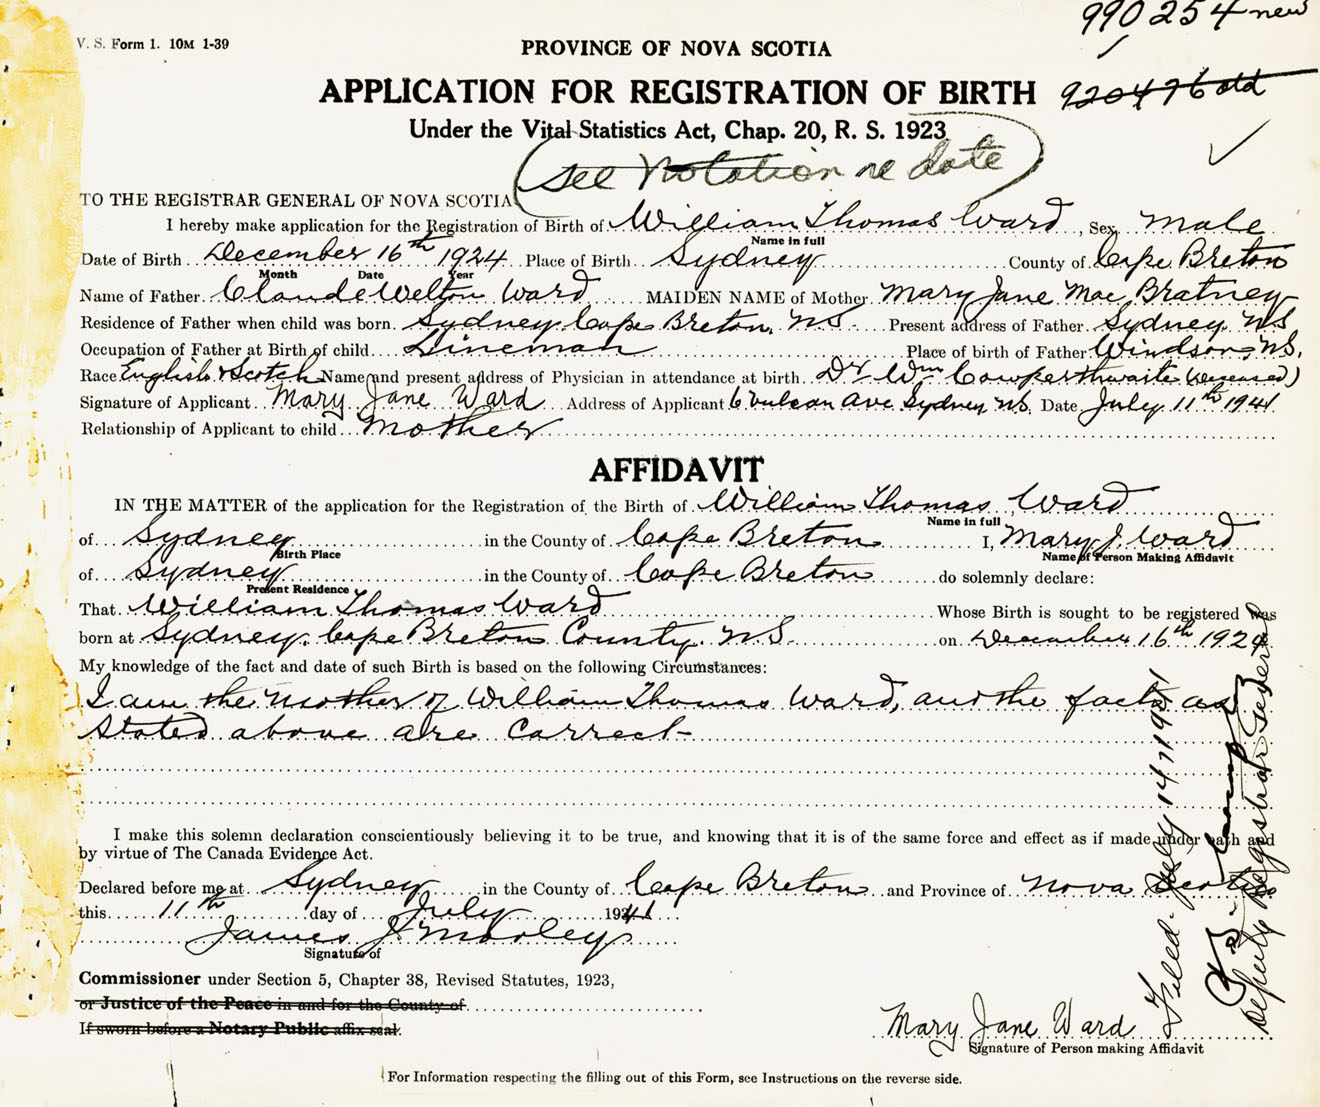 990254 new
V. S. Form 1. 10M 1-39
PROVINCE OF NOVA SCOTIA
APPLICATION FOR REGISTRATION OF BIRTH 920476 old
Under the Vital Statistics Act, Chap. 20, R. S. 1923
see Notation re date
TO THE REGISTRAR GENERAL OF NOVA SCOTIA
I hereby make application for the Registration of Birth of William Thomas Ward, Sex Male
Name in full
Date of Birth December 16th 1924 Place of Birth Sydney County of Cape Breton
Month Date Year
Name of Father Claude Welton Ward MAIDEN NAME of Mother Mary Jane Mac Bratney
Residence of Father when child was born Sydney Cape Breton N.S. Present address of Father Sydney N.S.
Occupation of Father at Birth of child Lineman Place of birth of Father Windsor, N.S.
Race English & Scotch Name and present address of Physician in attendance at birth Dr Wm Cowperthwaite (deceased)
Signature of Applicant Mary Jane Ward Address of Applicant 6 Vulcan Ave Sydney N.S. Date July 11th 1941
Relationship of Applicant to child Mother
AFFIDAVIT
IN THE MATTER of the application for the Registration of the Birth of William Thomas Ward
Name in full
of Sydney in the County of Cape Breton I, Mary J. Ward
Birth Place Name of Person Making Affidavit
of Sydney in the County of Cape Breton do solemnly declare:
Present Residence
That William Thomas Ward Whose Birth is sought to be registered was
born at Sydney. Cape Breton County. N.S. on December 16th 1924
My knowledge of the fact and date of such Birth is based on the following Circumstances:
I am the Mother of William Thomas Ward, and the facts as
stated above are correct-
I make this solemn declaration conscientiously believing it to be true, and knowing that it is of the same force and effect as if made under oath and
by virtue of The Canada Evidence Act.
Declared before me at Sydney in the County of Cape Breton and Province of Nova Scotia
this 11th day of July 1941
James J Morley
Signature of
Commissioner under Section 5, Chapter 38, Revised Statutes, 1923,
or Justice of the Peace in and for the County of
If sworn before a Notary Public affix seal.
Mary Jane Ward
Signature of Person making Affidavit
For Information respecting the filling out of this Form, see Instructions on the reverse side.
Filed July 14th 1941
Deputy Registrar General